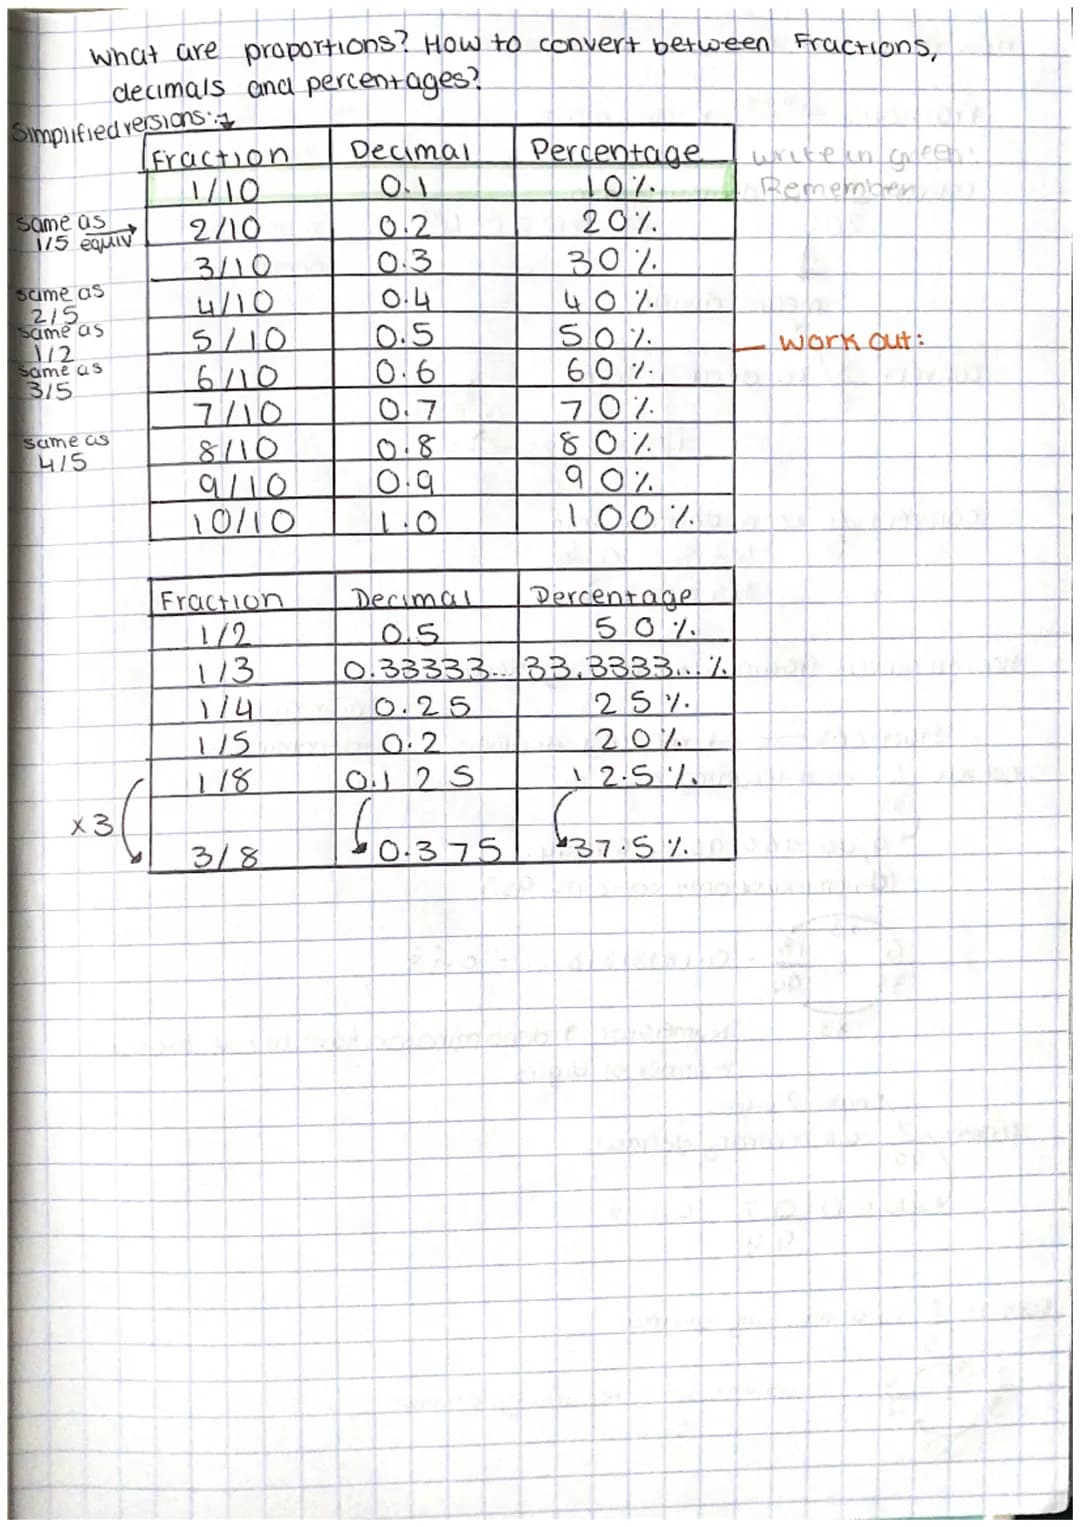 What are proportions? How to convert between Fractions,
decimals and percentages?
Simplified versions:
Fraction Decimal Percentage write in green:
1/10 0.1 10% Remember
same as 1/5 equiv 2/10 0.2 20%
3/10 0.3 30%
same as 2/5 4/10 0.4 40%
same as 1/2 5/10 0.5 50% - work out:
same as 3/5 6/10 0.6 60%
7/10 0.7 70%
same as 4/5 8/10 0.8 80%
9/10 0.9 90%
10/10 1.0 100%
Fraction Decimal Percentage
1/2 0.5 50%
1/3 0.33333... 33.3333...%
1/4 0.25 25%
1/5 0.2 20%
1/8 0.125 12.5%
x3
3/8 0.375 37.5%